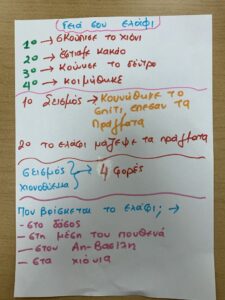 Γειά σου ελάφι
1º → σκούπισε το χιόνι
2º → έφτιαξε κακάο
3º → κούνησε το δέντρο
4º → κοιμήθηκε
1º Σεισμός → Κουνήθηκε το
σπίτι, έπεσαν τα
πράγματα
2º το ελάφι μάζεψε τα πράγματα
σεισμός
χιονοθύελλα → 4 φορές
Που βρίσκεται το ελάφι; →
- στο δάσος
- στη μέση του πουθενά
- στον Αη-Βασίλη
- στα χιόνια